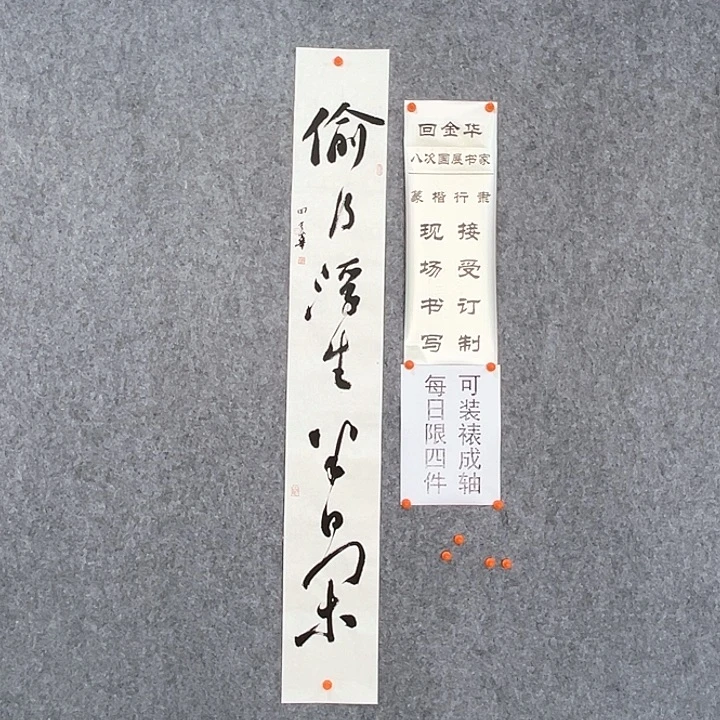 偷得浮生半日閑
回金華
回金华
八次国展书家
篆楷行隶
接受订制
现场书写
可装裱成轴
每日限四件